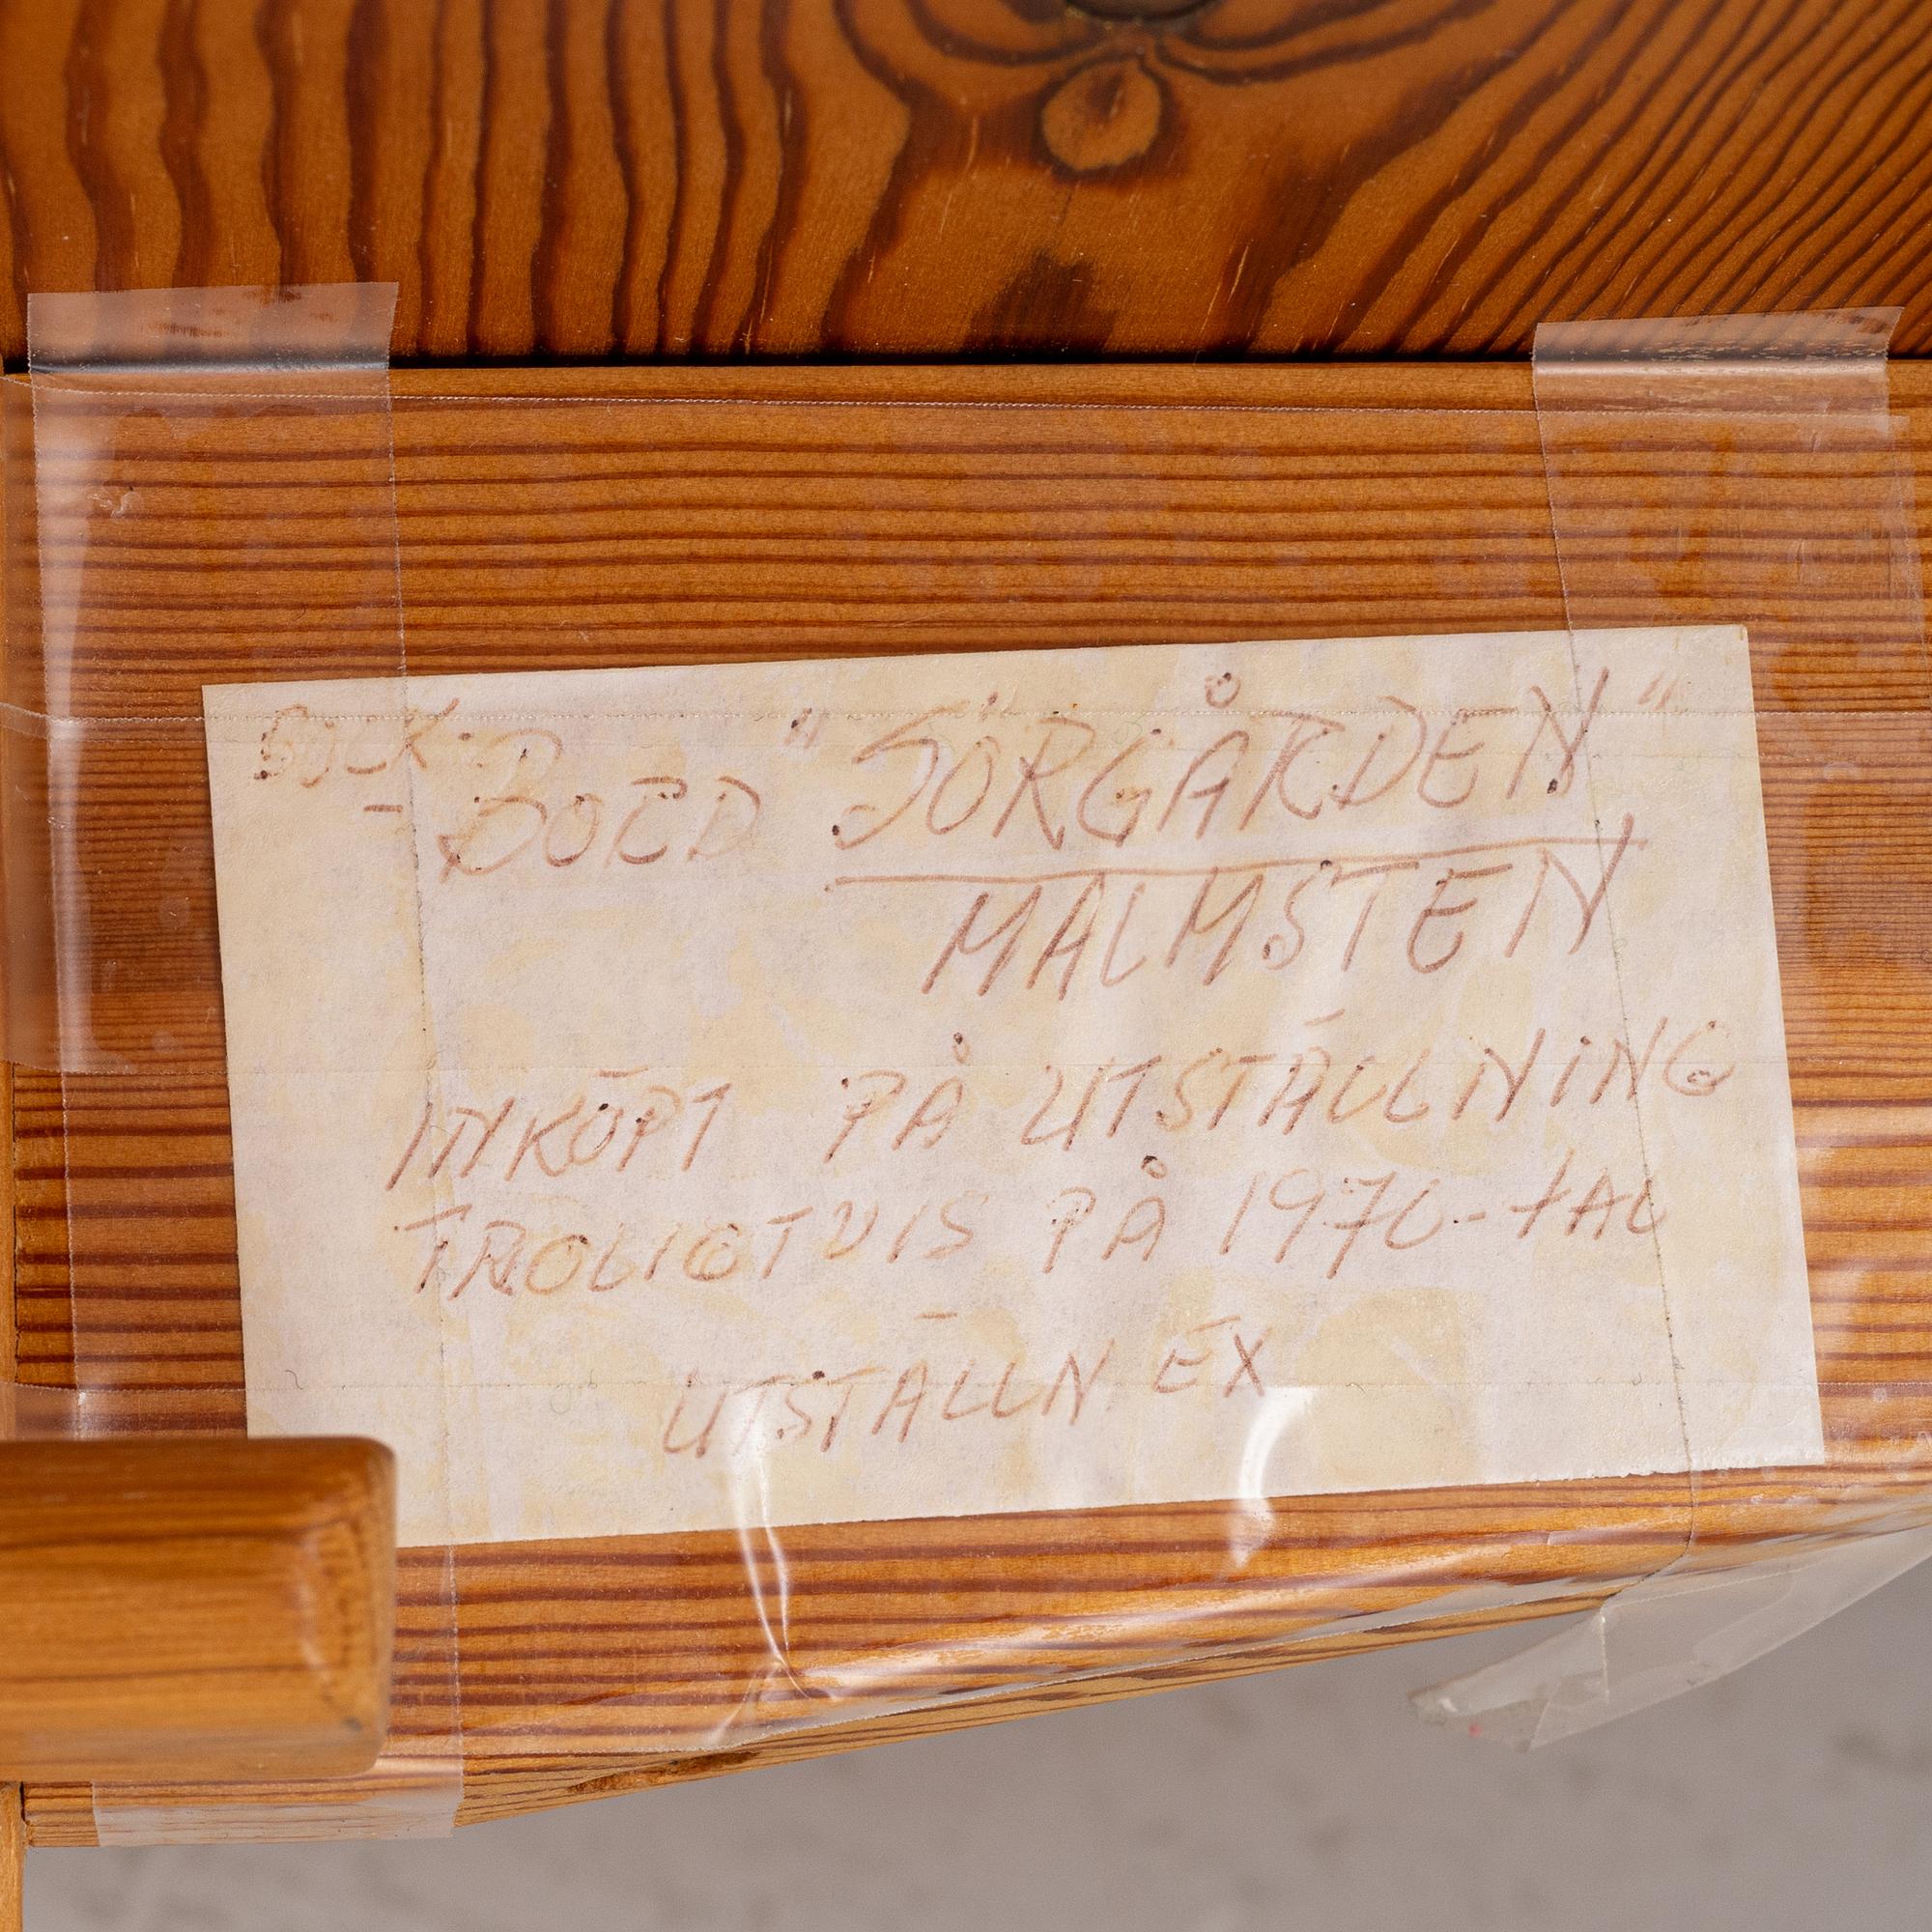 BOCK-
BORD "SÖRGÅRDEN"
MALMSTEN
INKÖPT PÅ UTSTÄLLNING
TROLIGTVIS PÅ 1970-TAL
UTSTÄLLN EX